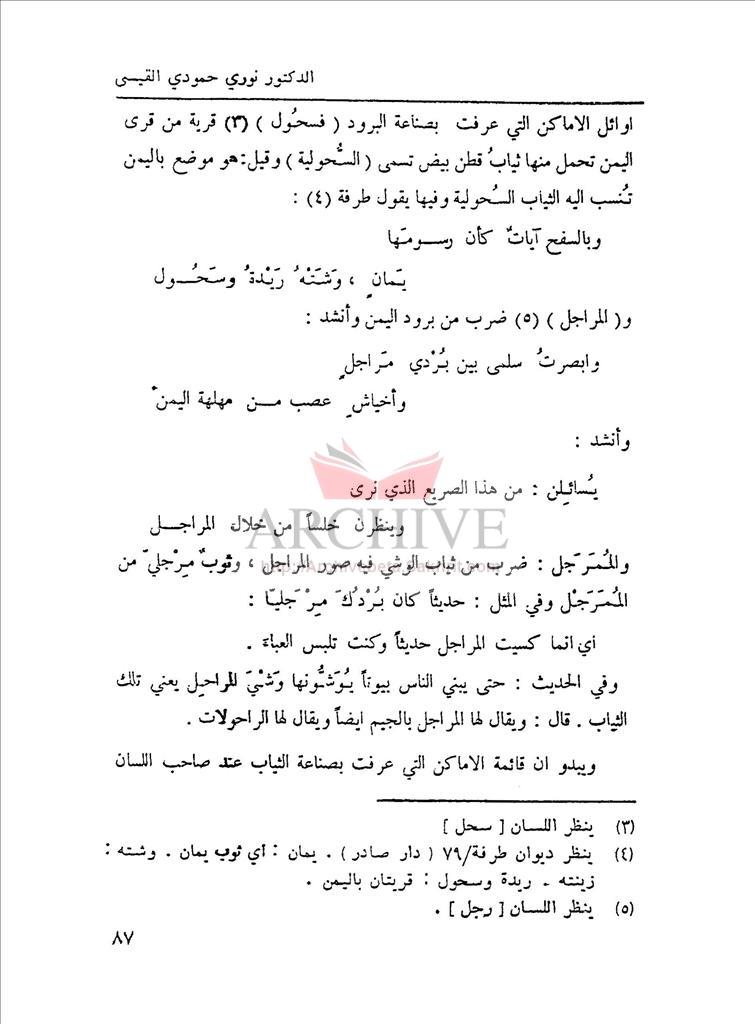 الدكتور نوري حمودي القيسي
اوائل الاماكن التي عرفت بصناعة البرود ( فسحُول ) (٣) قرية من قرى
اليمن تحمل منها ثيابُ قطن بيض تسمى ( السُّحولية ) وقيل: هو موضع باليمن
تُنسب اليه الثياب السُحولية وفيها يقول طرفة (٤) :
وبالسفح آياتٌ كأن رسومَها
يَمانٍ ، وَشَتْهُ رَيْدةُ وسَحُول
و( المراجل ) (٥) ضرب من برود اليمن وأنشد :
وابصرتُ سلمى بين بُرْدي مَراجلٍ
وأخياشٍ عصب من مهلهة اليمنْ
وأنشد :
يُسائِلن : من هذا الصريع الذي نرى
وينظرن خلساً من خلال المراجل
ARCHIVE
والمُمَرَجل : ضرب من ثياب الوشي فيه صور المراجل ، وثوبٌ مِرْجليّ من
المُمَرَجْل وفي المثل : حديثاً كان بُرْدُكَ مِرْجَليّا :
أي انما كسيت المراجل حديثاً وكنت تلبس العباءَ .
وفي الحديث : حتى يبني الناس بيوتاً يُوَشُّونها وَشْيَ المراحيل يعني تلك
الثياب . قال : ويقال لها المراجل بالجيم ايضاً ويقال لها الراحولات .
ويبدو ان قائمة الاماكن التي عرفت بصناعة الثياب عند صاحب اللسان
(٣) ينظر اللسان [ سحل ]
(٤) ينظر ديوان طرفة/٧٩ ( دار صادر ) . يمان : أي ثوب يمان . وشته :
زينته ـ ريدة وسحول : قريتان باليمن .
(٥) ينظر اللسان [ رجل ] .
٨٧